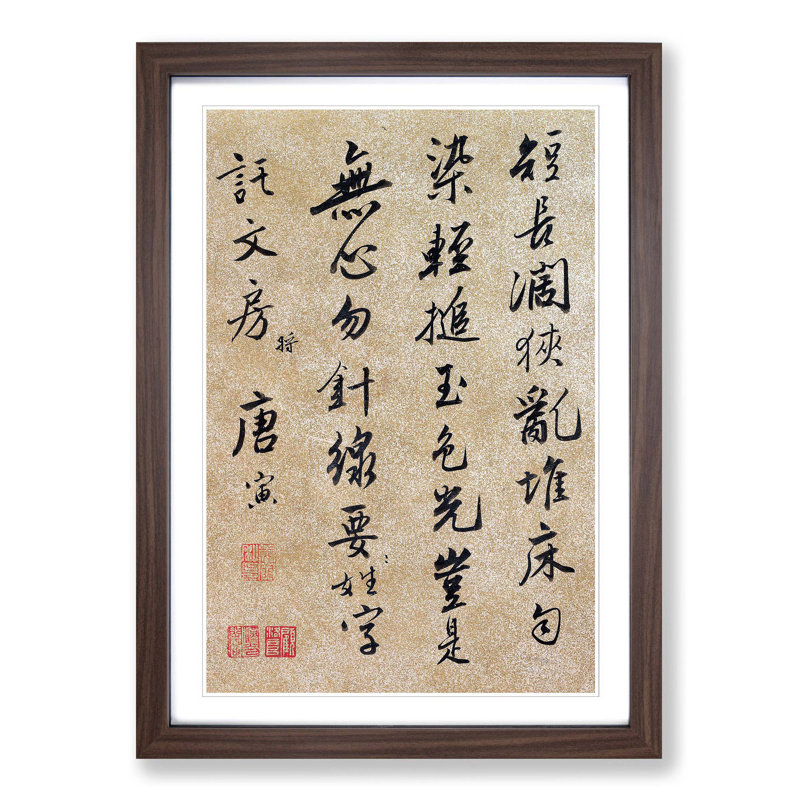 短長濶狹亂堆床勻
染輕搥玉色光豈是
無心勿針線要姓字
託文房 將 唐寅